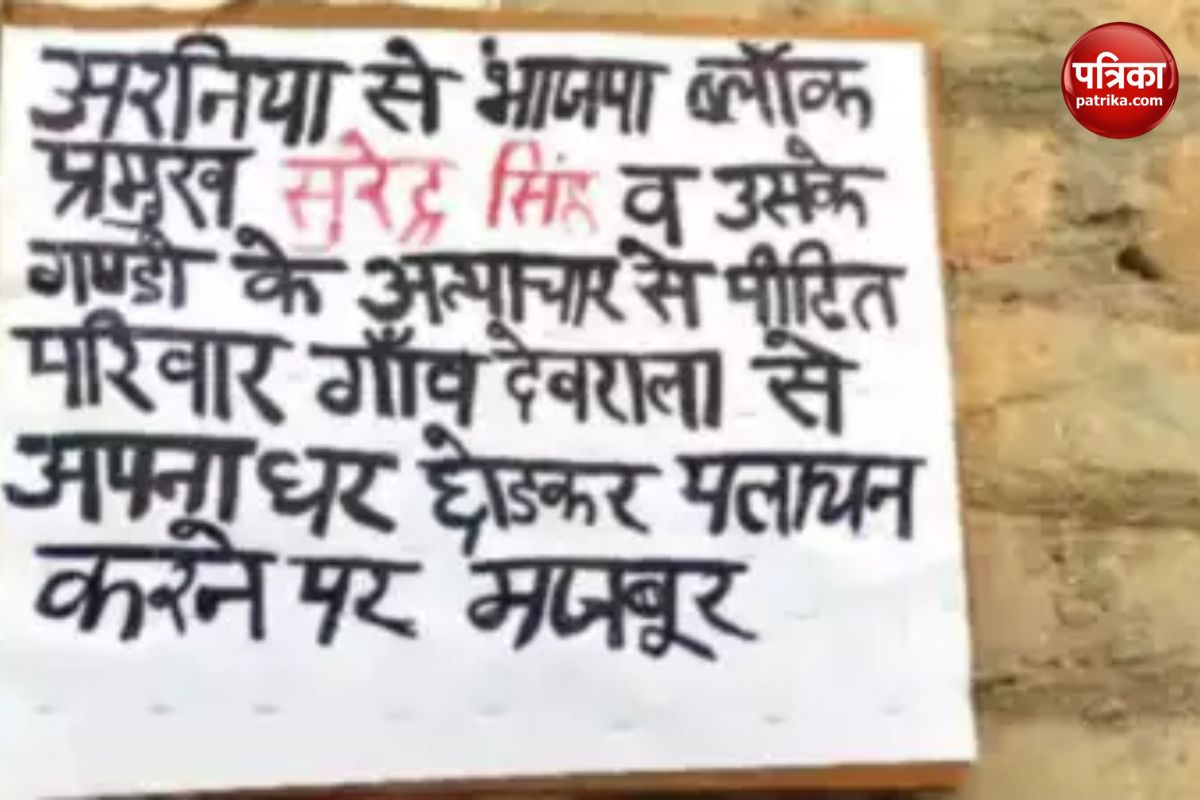 अरनिया से भाजपा ब्लॉक
प्रमुख सुरेन्द्र सिंह व उसके
गुण्डो के अत्याचार से पीडित
परिवार गाँव देवराला से
अपना घर छोडकर पलायन
करने पर मजबूर
पत्रिका
patrika.com